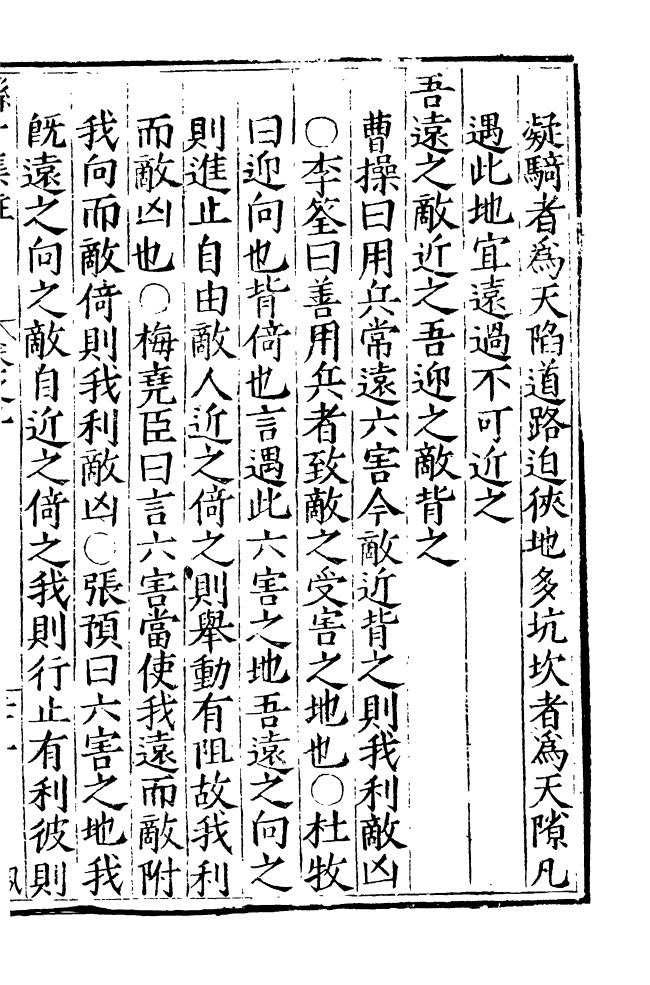 凝騎者爲天陷道路迫俠地多坑坎者爲天隙凡
遇此地宜遠過不可近之
吾遠之敵近之吾迎之敵背之
曹操曰用兵常遠六害今敵近背之則我利敵凶
○李筌曰善用兵者致敵之受害之地也○杜牧
曰迎向也背倚也言遇此六害之地吾遠之向之
則進止自由敵人近之倚之則舉動有阻故我利
而敵凶也○梅堯臣曰言六害當使我遠而敵附
我向而敵倚則我利敵凶○張預曰六害之地我
旣遠之向之敵自近之倚之我則行止有利彼則